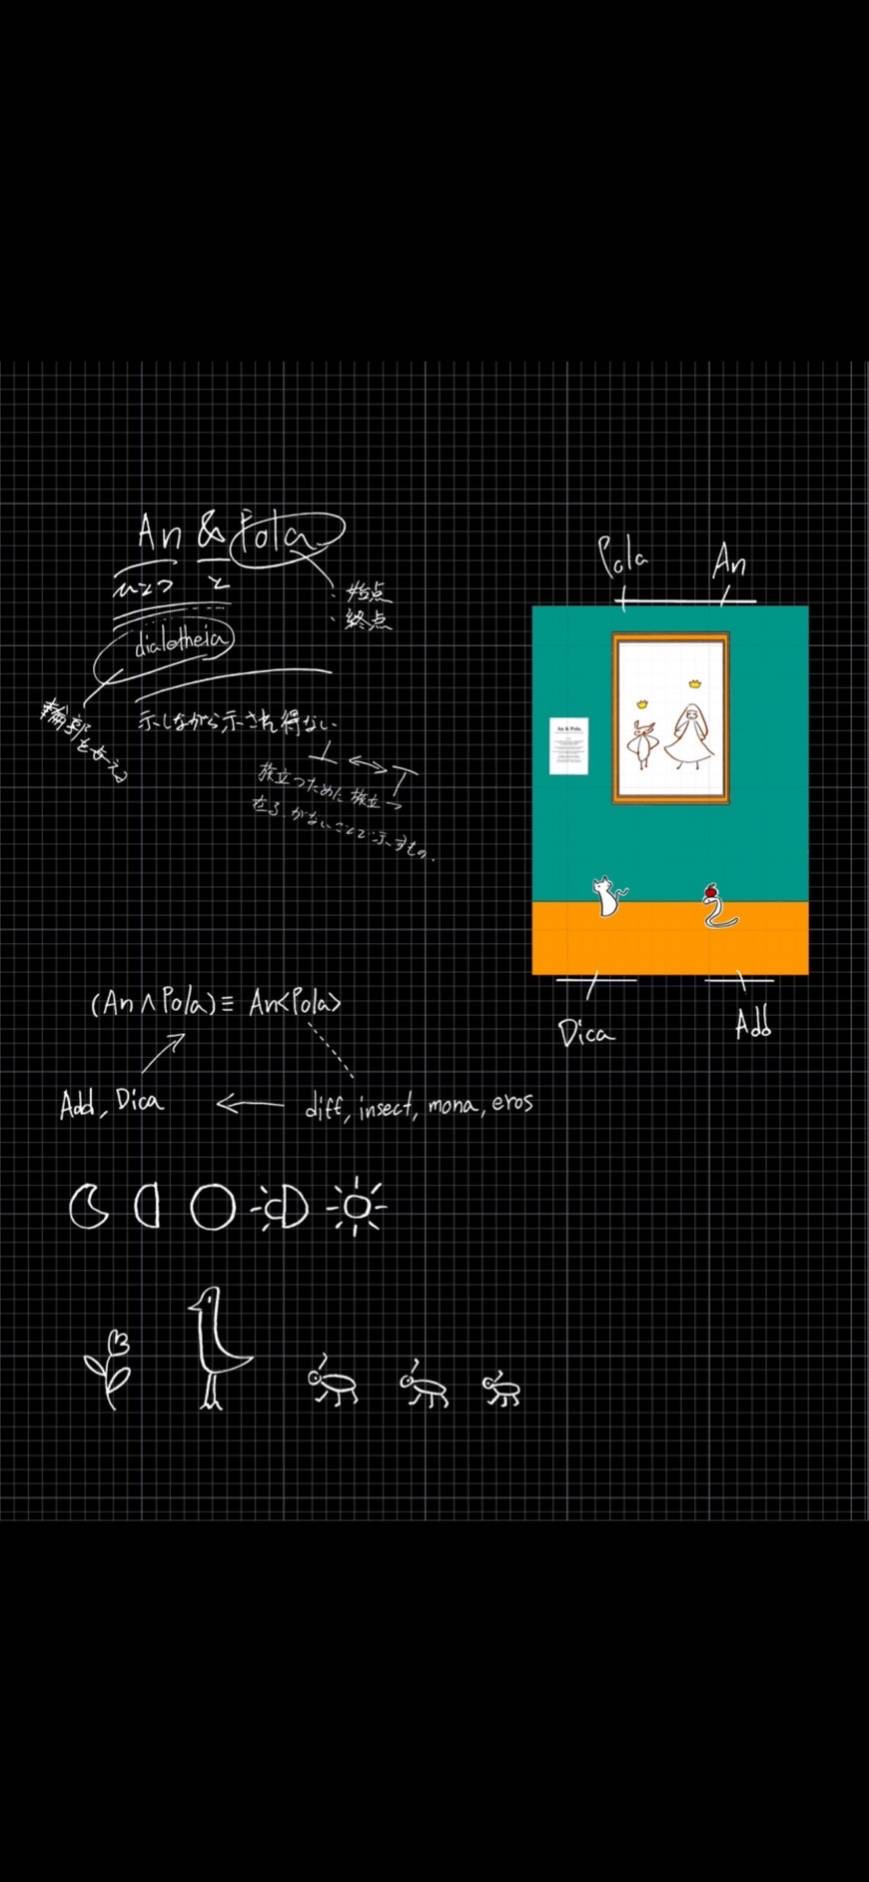 An & Pola
ひとつ と
・始点
・終点
dialetheia
輪郭を与える
示しながら示され得ない
⊥ ↔ ⊤
旅立つために旅立つ
在る がないことで示すもの.
Pola An
An & Pola.
Dica Add
(An ∧ Pola) ≡ An<Pola>
Add, Dica ← diff, insect, mona, eros